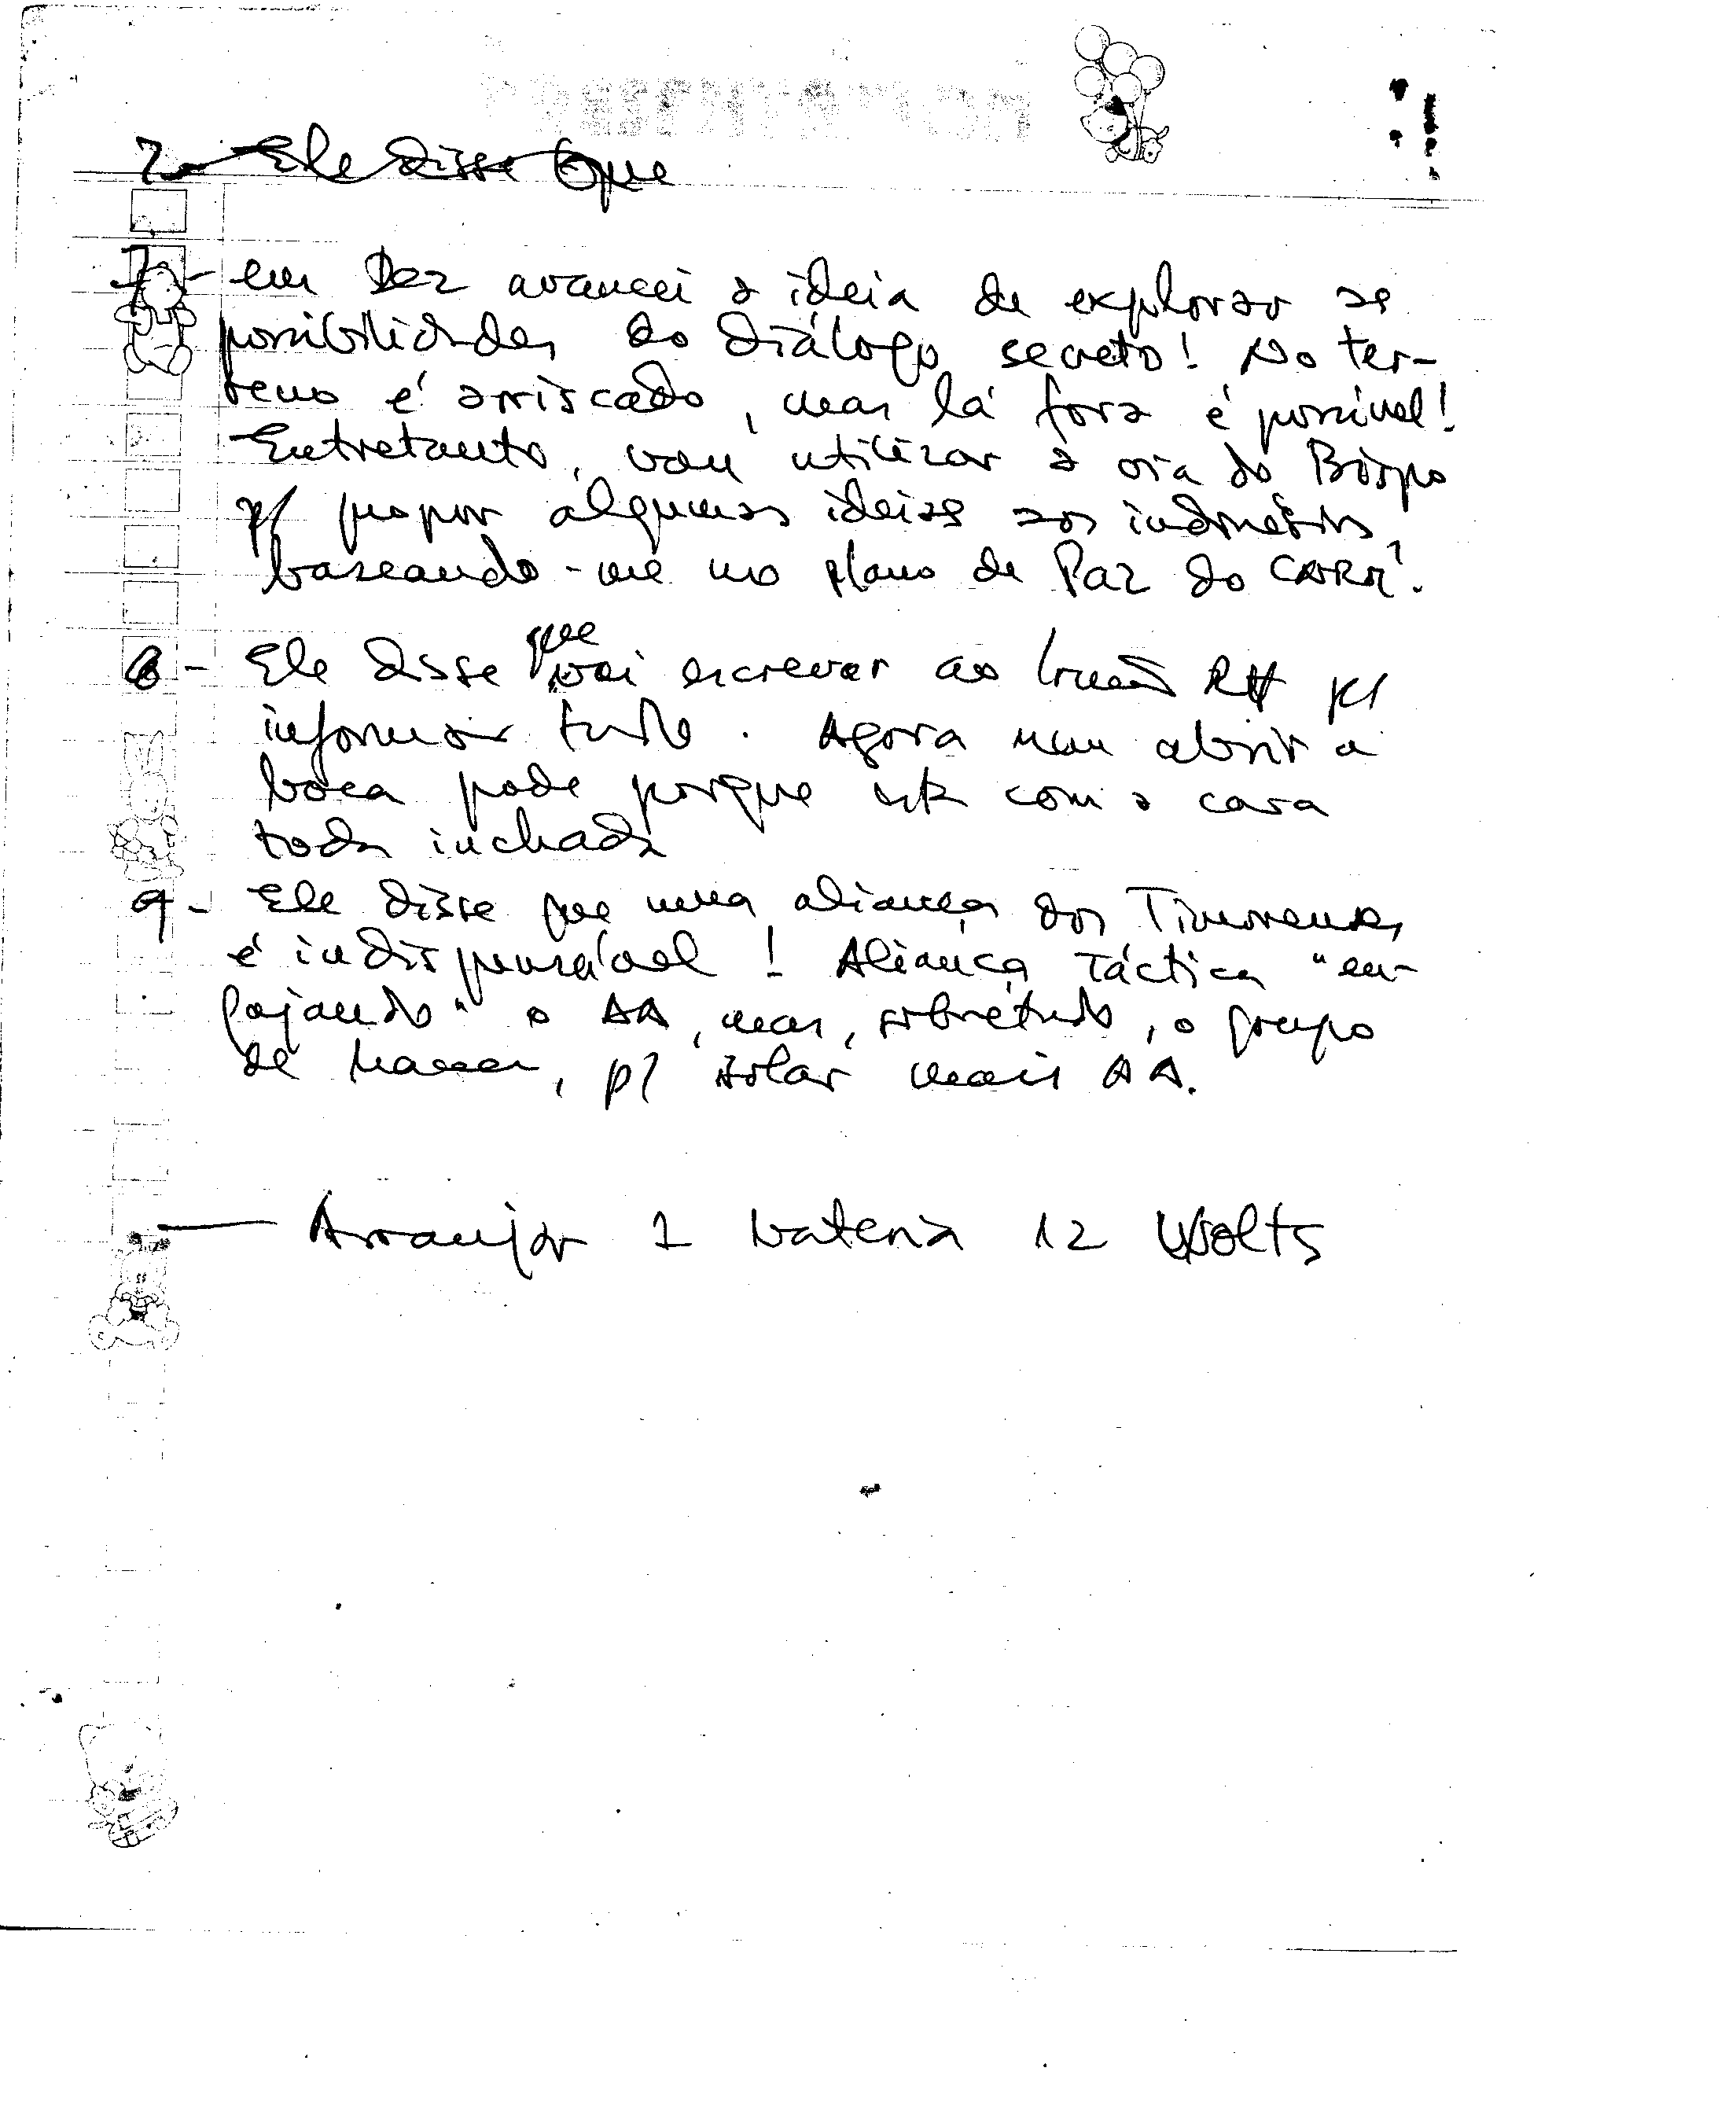 7- Ele disse que
7- em Dez avancei a ideia de explorar as
possibilidades do diálogo secreto! No ter-
reno é arriscado, mas lá fora é possível!
Entretanto, vou utilizar a via do Bispo
p/ propor algumas ideias aos indonésios,
baseando-me no plano de Paz do CNRM.
8- Ele disse que vai escrever ao Irmão RH p/
informar tudo. Agora nem abrir a
boca pode porque está com a cara
toda inchada
9- Ele disse que uma aliança dos Timorenses
é indispensável! Aliança táctica "en-
gajando" o AA, mas, sobretudo, o grupo
de, p/ isolar mais AA.
— Arranjar 1 bateria 12 Volts